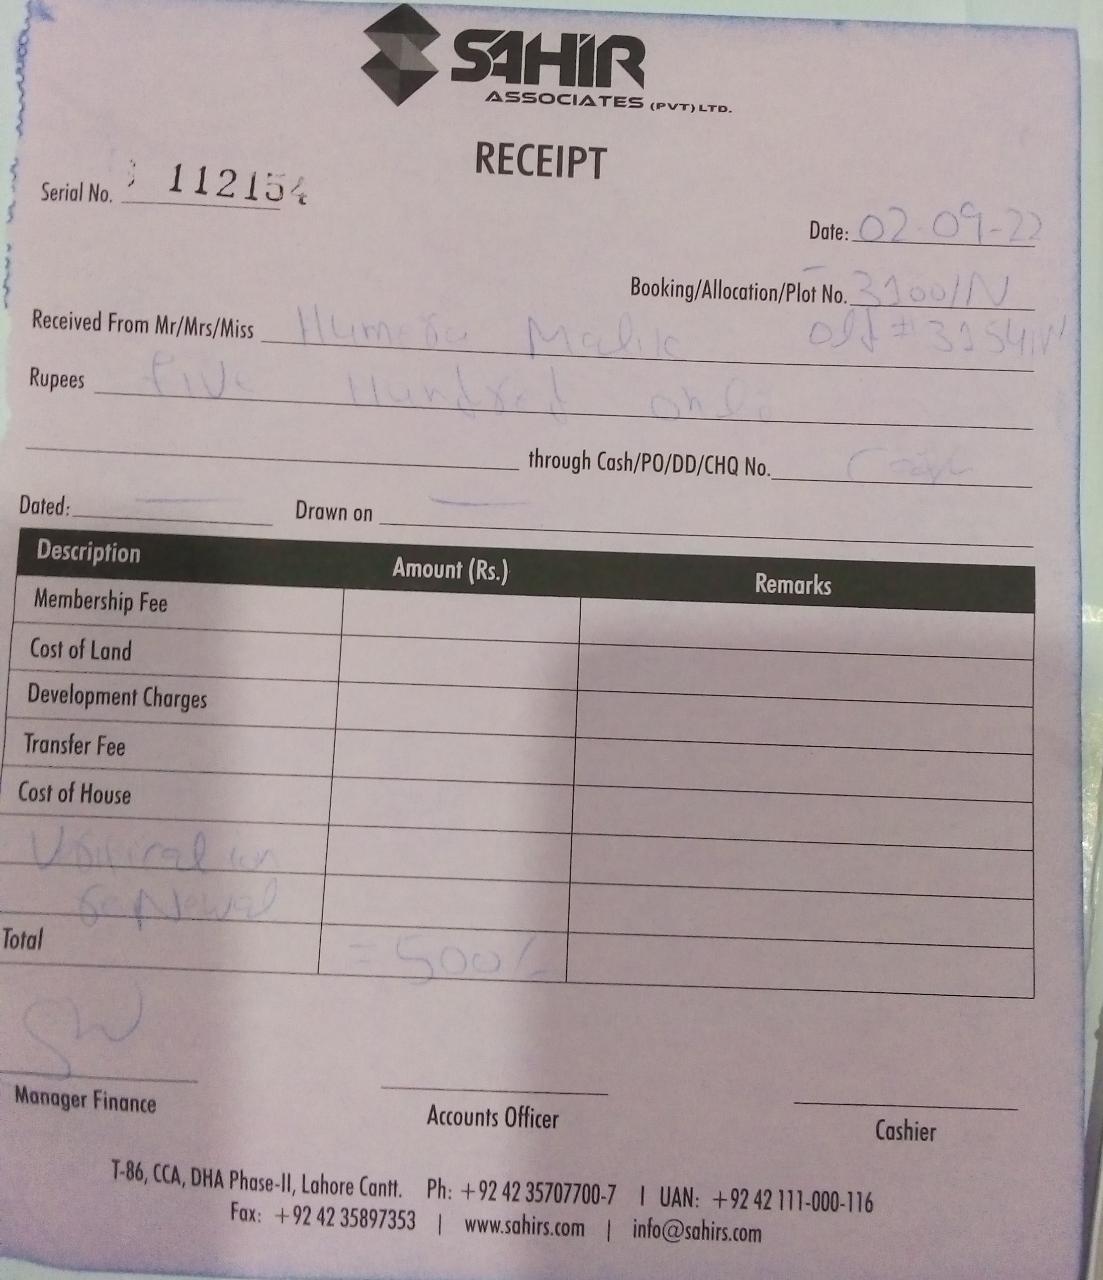 SAHIR
ASSOCIATES (PVT) LTD.
RECEIPT
Serial No. 112154
Date: 02-09-22
Booking/Allocation/Plot No. 3100/N
Received From Mr/Mrs/Miss Humera Malik old # 3154/N
Rupees five Hundred only
through Cash/PO/DD/CHQ No. Cash
Dated: — Drawn on —
Description Amount (Rs.) Remarks
Membership Fee
Cost of Land
Development Charges
Transfer Fee
Cost of House
Total = 500/-
Manager Finance Accounts Officer Cashier
T-86, CCA, DHA Phase-II, Lahore Cantt. Ph: +92 42 35707700-7 | UAN: +92 42 111-000-116
Fax: +92 42 35897353 | www.sahirs.com | info@sahirs.com